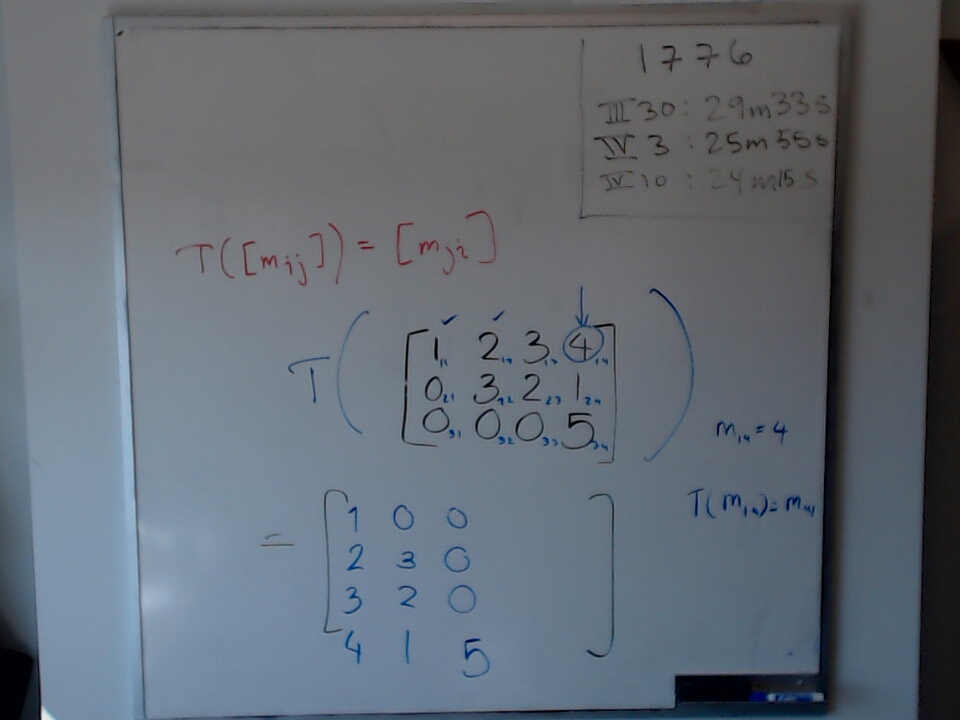 1776
III 30 : 29m33s
IV 3 : 25m55s
IV 10 : 24m15s
T([mij]) = [mji]
T ( [ 1 11 2 12 3 13 4 14 ]
0 21 3 22 2 23 1 24
0 31 0 32 0 33 5 34 )
m14 = 4
T(m14) = m41
= [ 1 0 0 ]
2 3 0
3 2 0
4 1 5